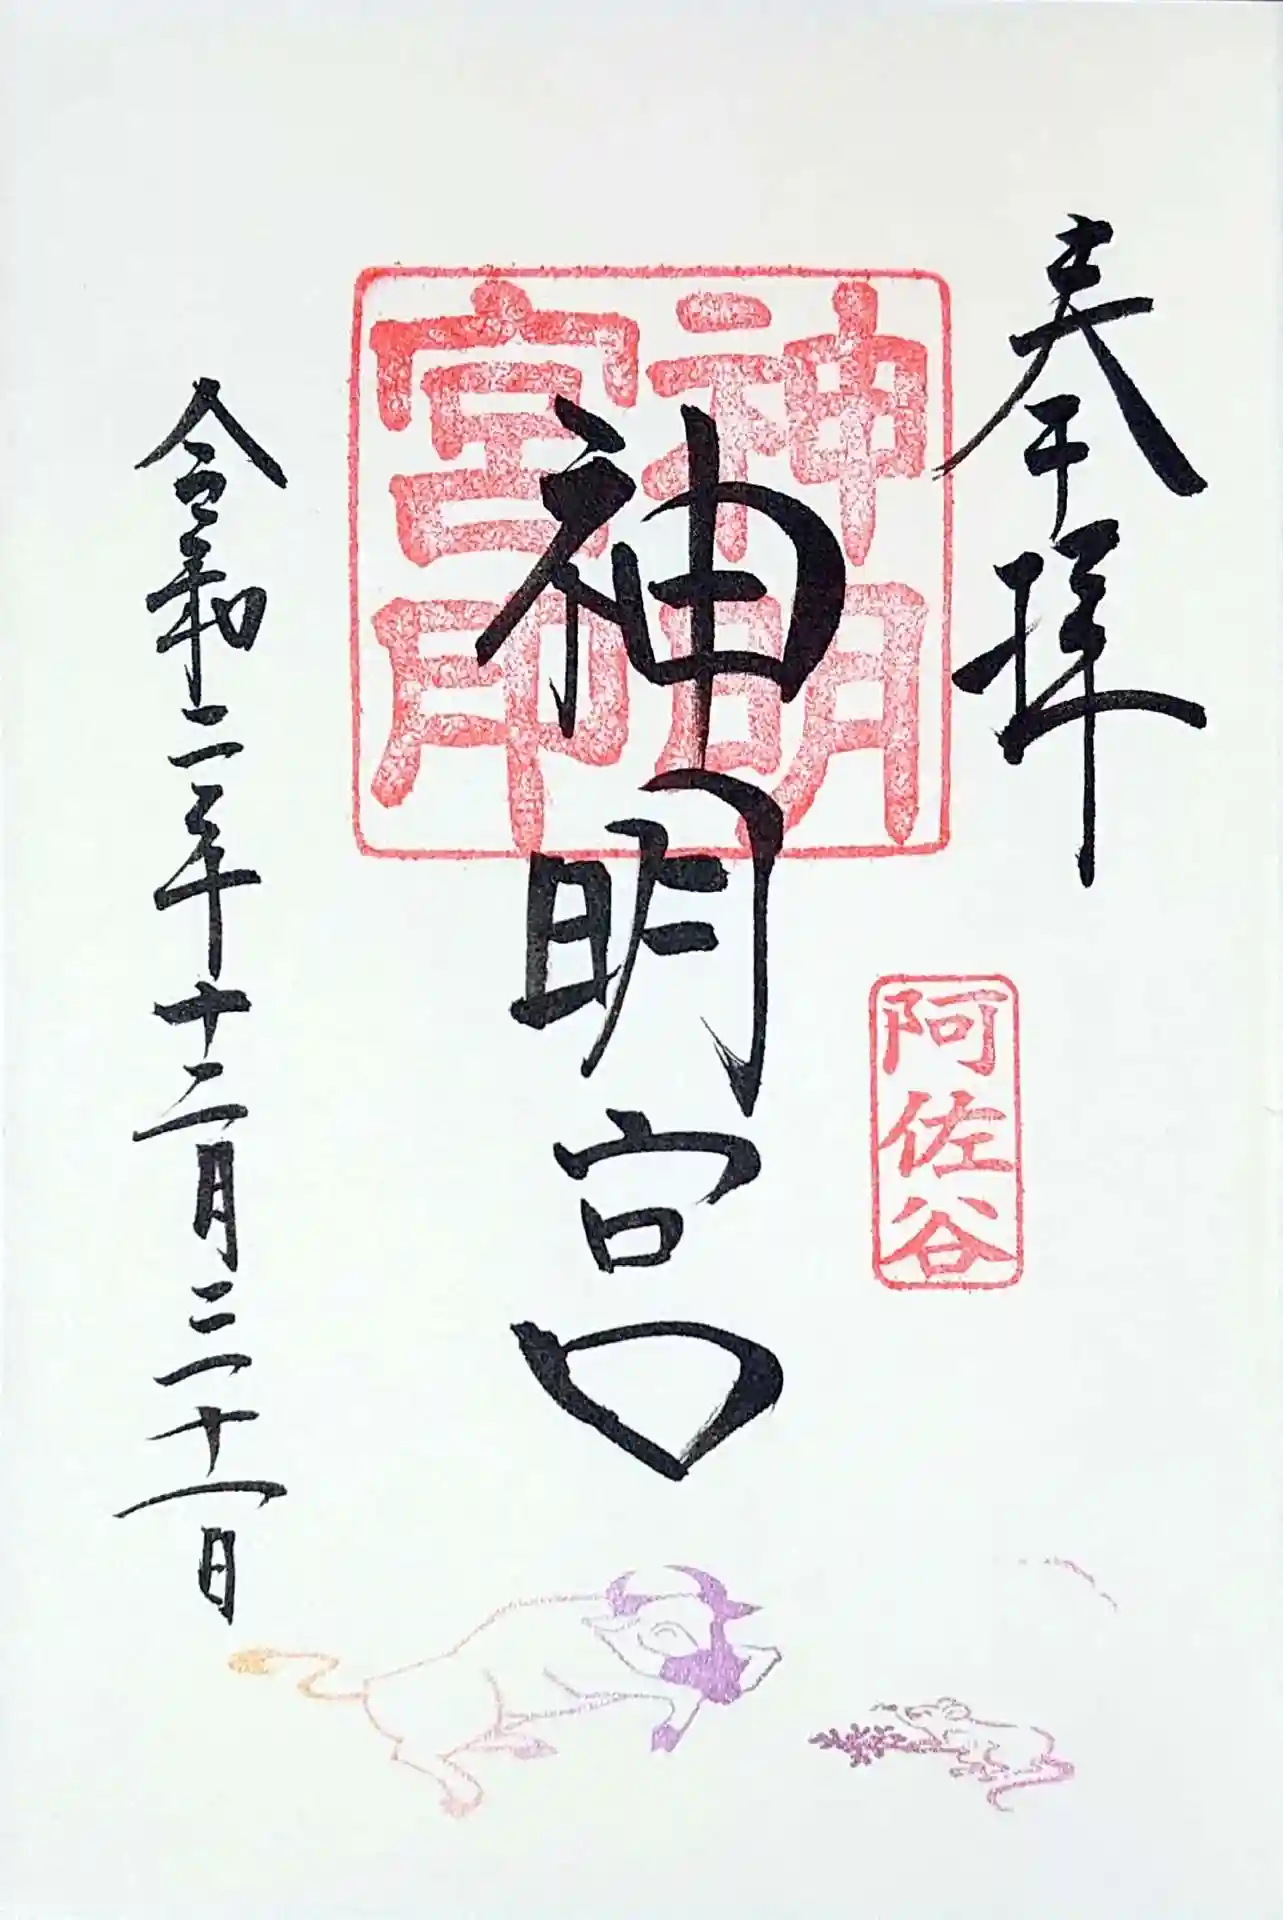 奉拝
阿佐谷
神明
宮印
神明宮
令和二年十二月三十一日